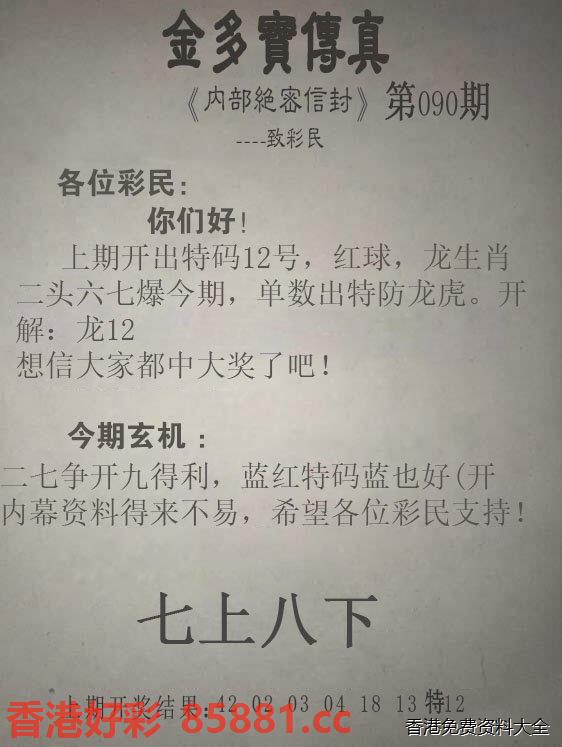 金多寶傳真
《内部絕密信封》第090期
----致彩民
各位彩民:
你们好!
上期开出特码12号, 红球, 龙生肖
二头六七爆今期, 单数出特防龙虎。开
解: 龙12
想信大家都中大奖了吧!
今期玄机:
二七争开九得利, 蓝红特码蓝也好(开
内幕资料得来不易, 希望各位彩民支持!
七上八下
上期开奖结果: 42 02 03 04 18 13 特12
香港好彩 85881.cc
香港免费资料大全